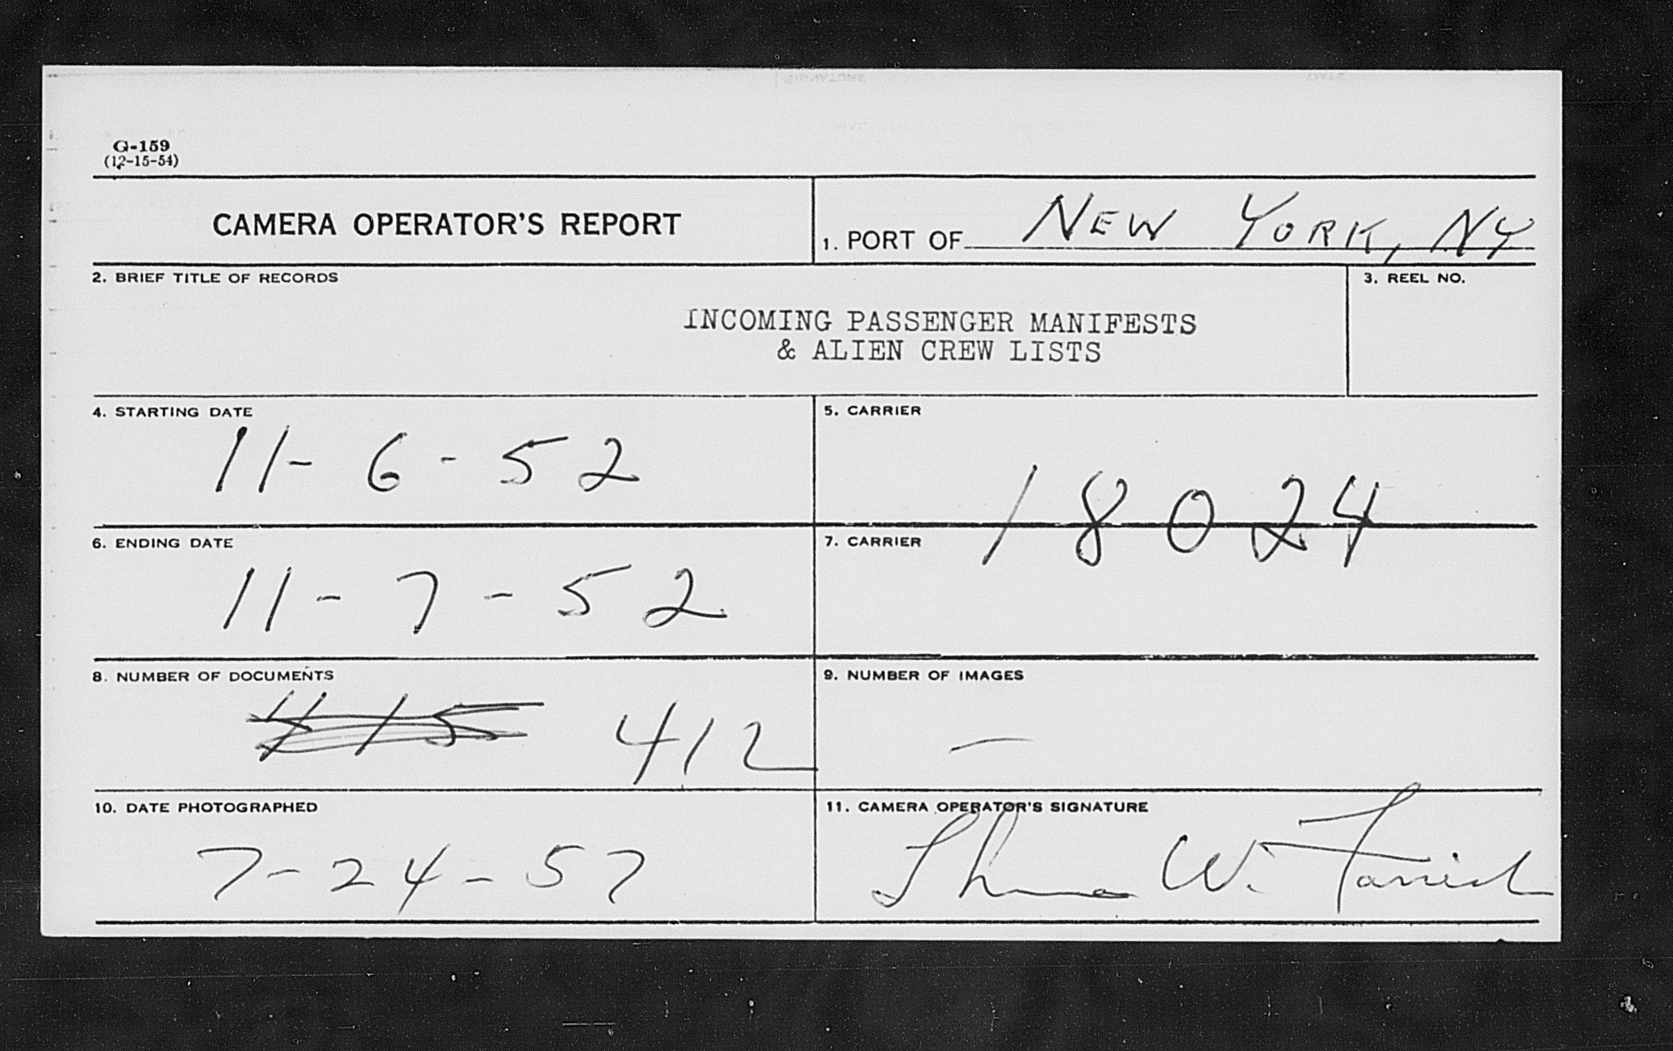 G-159
(12-15-54)
CAMERA OPERATOR'S REPORT
1. PORT OF NEW YORK, NY
2. BRIEF TITLE OF RECORDS
3. REEL NO.
INCOMING PASSENGER MANIFESTS
& ALIEN CREW LISTS
4. STARTING DATE
11-6-52
5. CARRIER
18024
6. ENDING DATE
11-7-52
7. CARRIER
8. NUMBER OF DOCUMENTS
415 412
9. NUMBER OF IMAGES
—
10. DATE PHOTOGRAPHED
7-24-57
11. CAMERA OPERATOR'S SIGNATURE
W.